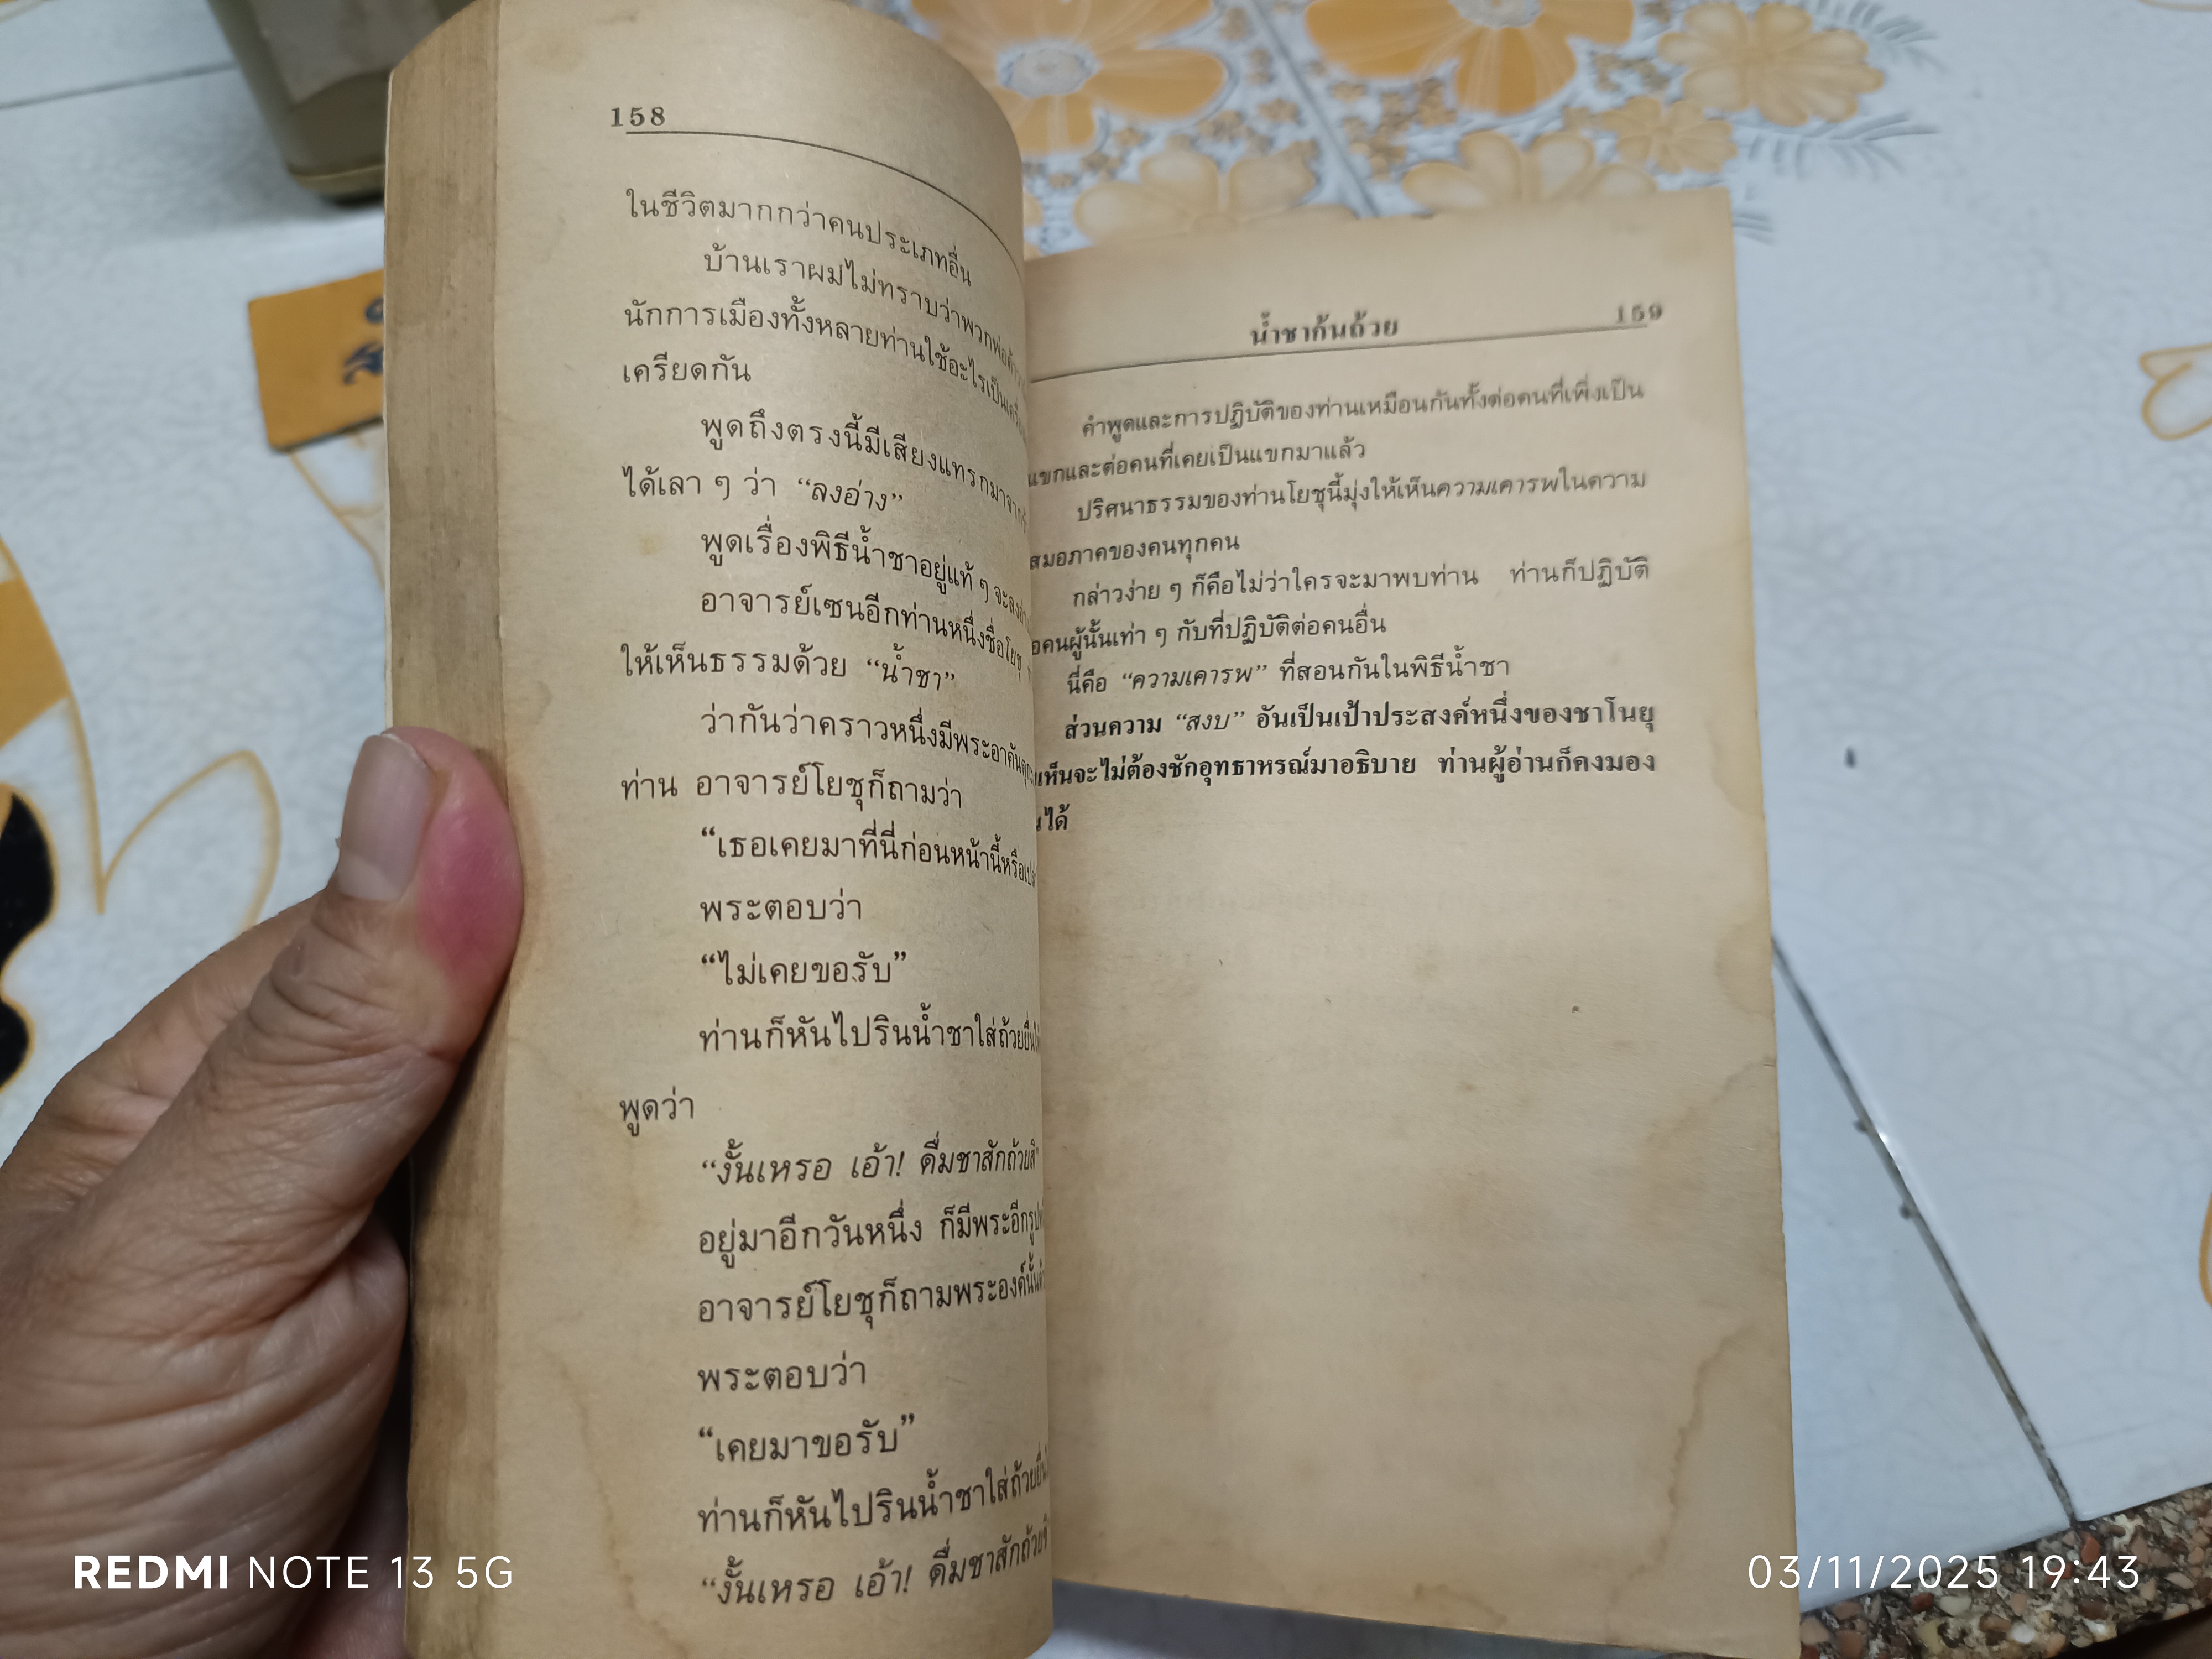 158
ในชีวิตมากกว่าคนประเภทอื่น
บ้านเราผมไม่ทราบว่าพวกพ่อค้า
นักการเมืองทั้งหลายท่านใช้อะไรเป็น
เครียดกัน
พูดถึงตรงนี้มีเสียงแทรกมาจาก
ได้เลา ๆ ว่า “ลงอ่าง”
พูดเรื่องพิธีน้ำชาอยู่แท้ ๆ จะลง
อาจารย์เซนอีกท่านหนึ่งชื่อโยชุ
ให้เห็นธรรมด้วย “น้ำชา”
ว่ากันว่าคราวหนึ่งมีพระอาคันตุกะ
ท่าน อาจารย์โยชุก็ถามว่า
“เธอเคยมาที่นี่ก่อนหน้านี้หรือ
พระตอบว่า
“ไม่เคยขอรับ”
ท่านก็หันไปรินน้ำชาใส่ถ้วยยื่น
พูดว่า
“งั้นเหรอ เอ้า! ดื่มชาสักถ้วยสิ”
อยู่มาอีกวันหนึ่ง ก็มีพระอีกรูป
อาจารย์โยชุก็ถามพระองค์นั้น
พระตอบว่า
“เคยมาขอรับ”
ท่านก็หันไปรินน้ำชาใส่ถ้วยยื่น
“งั้นเหรอ เอ้า! ดื่มชาสักถ้วย
น้ำชาก้นถ้วย 159
คำพูดและการปฏิบัติของท่านเหมือนกันทั้งต่อคนที่เพิ่งเป็น
แขกและต่อคนที่เคยเป็นแขกมาแล้ว
ปริศนาธรรมของท่านโยชุนี้มุ่งให้เห็นความเคารพในความ
สมอภาคของคนทุกคน
กล่าวง่าย ๆ ก็คือไม่ว่าใครจะมาพบท่าน ท่านก็ปฏิบัติ
อคนผู้นั้นเท่า ๆ กับที่ปฏิบัติต่อคนอื่น
นี่คือ “ความเคารพ” ที่สอนกันในพิธีน้ำชา
ส่วนความ “สงบ” อันเป็นเป้าประสงค์หนึ่งของชาโนยุ
เห็นจะไม่ต้องชักอุทธาหรณ์มาอธิบาย ท่านผู้อ่านก็คงมอง
ได้
REDMI NOTE 13 5G
03/11/2025 19:43